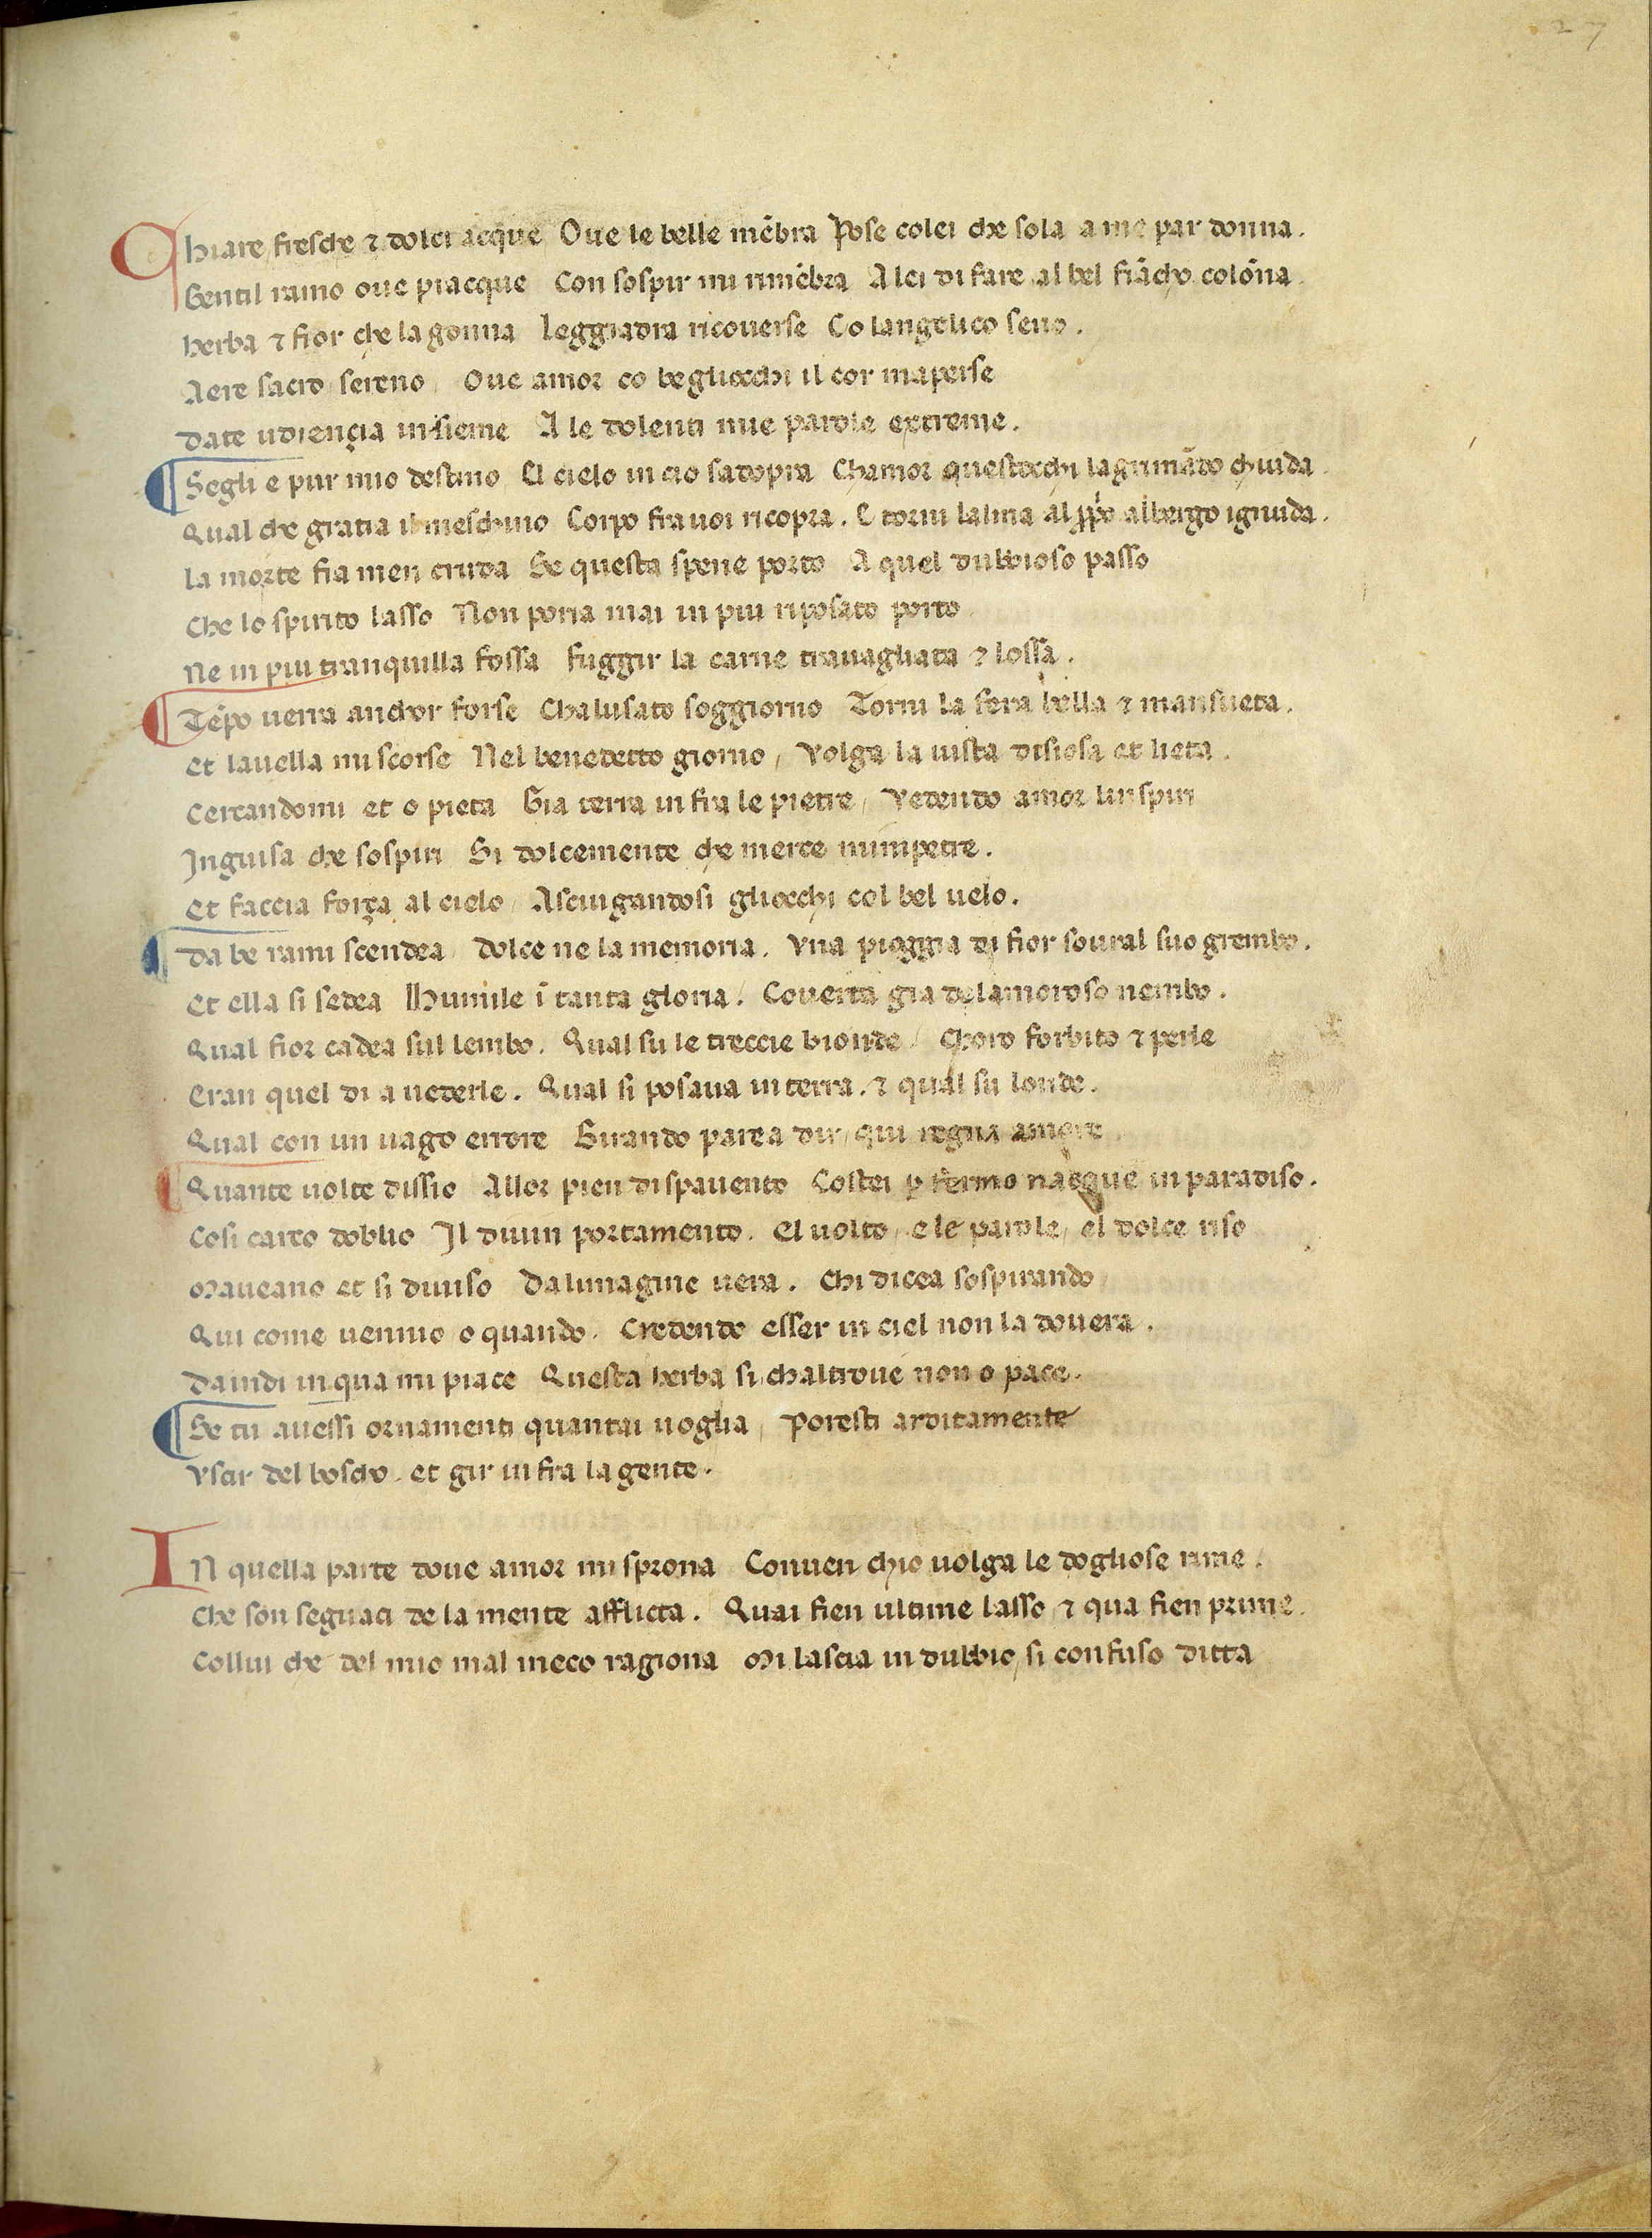 27
Chiare fresche ⁊ dolci acque Oue le belle mēbra Pose colei che sola a me par donna.
Gentil ramo oue piacque Con sospir mi rimēbra A lei di fare al bel fiācho colōna.
herba ⁊ fior che la gonna Leggiadra ricouerse Co langelico seno.
Aere sacro sereno Oue amor co begliocchi il cor maperse
Date udiença insieme A le dolenti mie parole extreme.
Segli e pur mio destino El cielo in cio sadopra Chamor questocchi lagrimādo chiuda.
Qual che gratia il meschino Corpo fra uoi ricopra. E torni lalma al ꝓpo albergo ignuda.
La morte fia men cruda Se questa spene porto A quel dubbioso passo
Che lo spirito lasso Non poria mai in piu riposato porto
Ne in piu tranquilla fossa Fuggir la carne trauagliata ⁊ lossa.
Tēpo uerra anchor forse Chalusato soggiorno Torni la fera bella ⁊ mansueta.
Et lauella mi scorse Nel benedetto giorno, Volga la uista disiosa et lieta.
Cercandomi et o pieta Gia terra in fra le pietre, Vedendo amor linspiri
Inguisa che sospiri Si dolcemente che merce mimpetre.
Et faccia força al cielo, Asciugandosi gliocchi col bel uelo.
Da be rami scendea, dolce ne la memoria. Vna pioggia di fior soural suo grembo.
Et ella si sedea Humile ī tanta gloria. Couerta gia delamoroso nembo.
Qual fior cadea sul lembo. Qual su le treccie bionde, Choro forbito ⁊ perle
Eran quel di a uederle. Qual si posaua in terra. ⁊ qual su londe.
Qual con un uago errore Girando parea dir, qui regna amore
Quante uolte dissio Allor pien dispauento Costei ꝑ fermo nacque in paradiso.
Cosi carco doblio Il diuin portamento. El uolto, e le parole, el dolce riso
Maueano et si diuiso Dalimagine uera. Chi dicea sospirando
Qui come uennio o quando. Credendo esser in ciel non la douera.
Daindi in qua mi piace Questa herba si chaltroue non o pace.
Se tu auessi ornamenti quantai uoglia, Poresti arditamente
Vscir del boscho. et gir in fra la gente.
IN quella parte doue amor mi sprona Conuen chio uolga le dogliose rime.
Che son seguaci de la mente afflicta. Quai fien ultime lasso, ⁊ qua fien prime.
Collui che del mio mal meco ragiona Mi lascia in dubbio, si confuso ditta